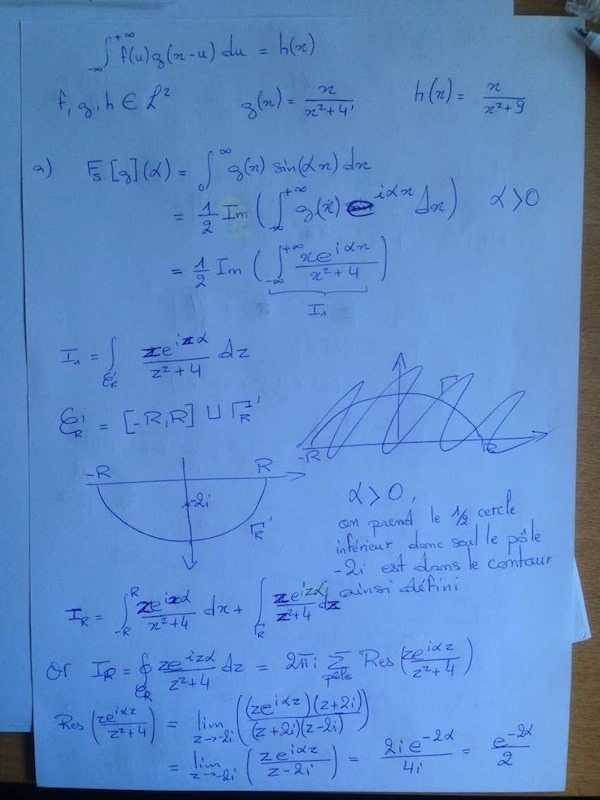 ∫_{-∞}^{+∞} f(u)g(x-u) du = h(x)
f, g, h ∈ L² g(x) = x/(x²+4) h(x) = x/(x²+9)
a) F_s[g](α) = ∫_0^∞ g(x) sin(αx) dx
= 1/2 Im (∫_{-∞}^{+∞} g(x) e^{iαx} dx) α>0
= 1/2 Im (∫_{-∞}^{+∞} xe^{iαx}/(x²+4))
I₁
I₁ = ∫_{C'_R} ze^{izα}/(z²+4) dz
C'_R = [-R,R] ∪ Γ'_R
-R R
-R R
-2i
Γ'_R
α>0,
on prend le 1/2 cercle
inférieur donc seul le pôle
-2i est dans le contour
ainsi défini
I_R = ∫_{-R}^{R} xe^{ixα}/(x²+4) dx + ∫_{Γ'_R} ze^{izα}/(z²+4) dz
Or I_R = ∮_{C'_R} ze^{izα}/(z²+4) dz = 2πi Σ_{pôles} Res (ze^{iαz}/(z²+4))
Res (ze^{iαz}/(z²+4)) = lim_{z→-2i} ((ze^{iαz})(z+2i)/((z+2i)(z-2i)))
= lim_{z→-2i} (ze^{iαz}/(z-2i)) = 2ie^{-2α}/4i = e^{-2α}/2